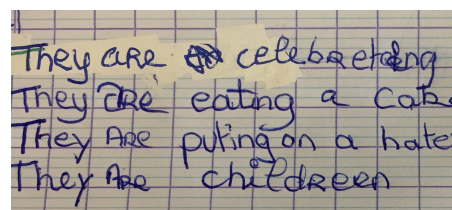 They are celebreting
They are eating a cake
They Are puting on a hate
They Are childreen